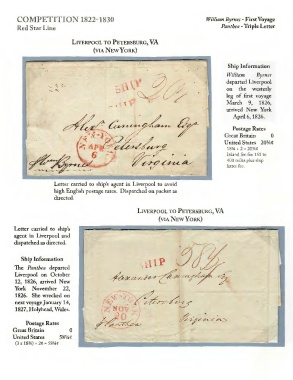 COMPETITION 1822-1830
Red Star Line
William Byrnes - First Voyage
Panthea - Triple Letter
LIVERPOOL TO PETERSBURG, VA
(VIA NEW YORK)
SHIP
Alexr Cuningham Esqr
Petersburg
Virginia
NEW-YORK
APR
6
Ship Information
William Byrnes
departed Liverpool
on the westerly
leg of first voyage
March 9, 1826,
arrived New York
April 6, 1826.
Postage Rates
Great Britain 0
United States 20½¢
18½¢ + 2 = 20½¢
Inland fee for 150 to
400 miles plus ship
letter fee.
Letter carried to ship's agent in Liverpool to avoid
high English postage rates. Dispatched on packet as
directed.
LIVERPOOL TO PETERSBURG, VA
(VIA NEW YORK)
Letter carried to ship's
agent in Liverpool and
dispatched as directed.
Ship Information
The Panthea departed
Liverpool on October
12, 1826, arrived New
York November 22,
1826. She wrecked on
next voyage January 14,
1827, Holyhead, Wales.
Postage Rates
Great Britain 0
United States
SHIP
Cuningham
Petersburg
Virginia
NEW-YORK
NOV
Panthea